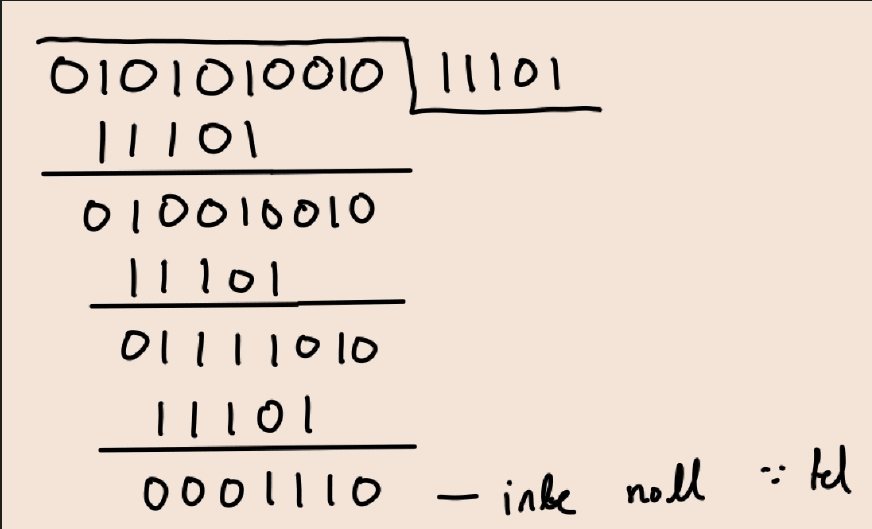 0101010010 11101
11101
010010010
11101
01111010
11101
0001110 — inte noll ∵ fel